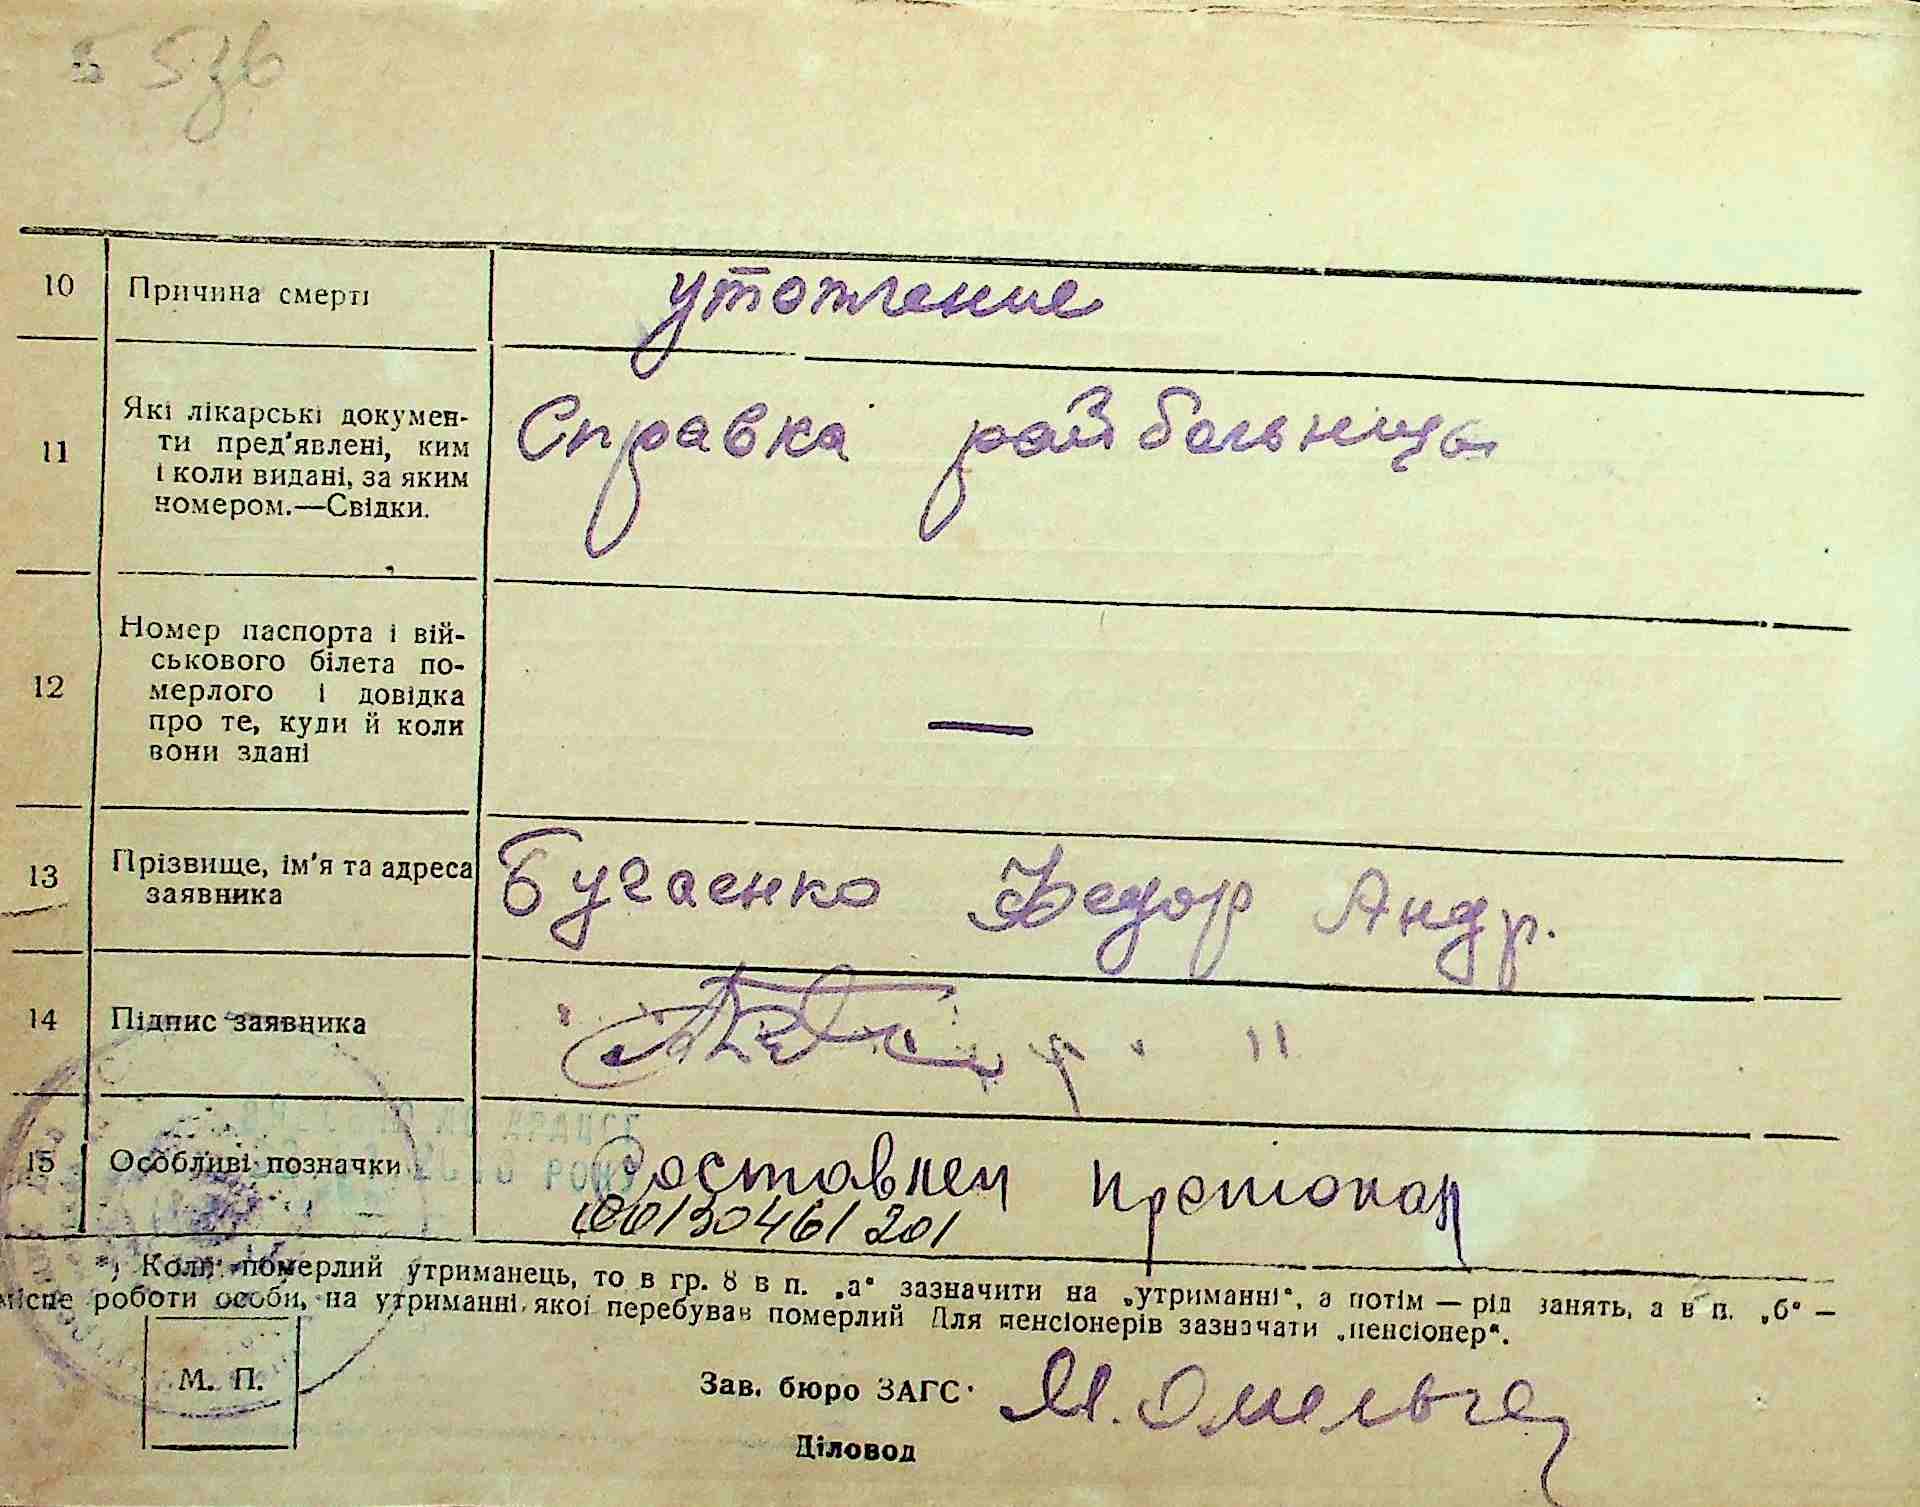 5 зв
10 Причина смерті утопление
11 Які лікарські докумен-
ти пред'явлені, ким
і коли видані, за яким
номером.—Свідки.
Справка райбольницы
12 Номер паспорта і вій-
ськового білета по-
мерлого і довідка
про те, куди й коли
вони здані
—
13 Прізвище, ім'я та адреса
заявника
Бугаенко Федор Андр.
14 Підпис заявника
15 Особливі позначки
РОКУ
составлен протокол
*) Коли померлий утриманець, то в гр. 8 в п. „а“ зазначити на „утриманні“, а потім — рід занять, а в п. „б“ —
місце роботи особи, на утриманні якої перебував померлий Для пенсіонерів зазначати „пенсіонер“.
М. П.
Зав. бюро ЗАГС
Діловод